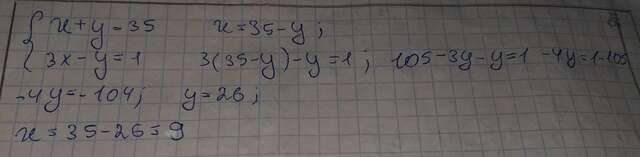 { x+y=35 x=35-y;
3x-y=1 3(35-y)-y=1; 105-3y-y=1 -4y=1-105
-4y=-104; y=26;
x=35-26=9